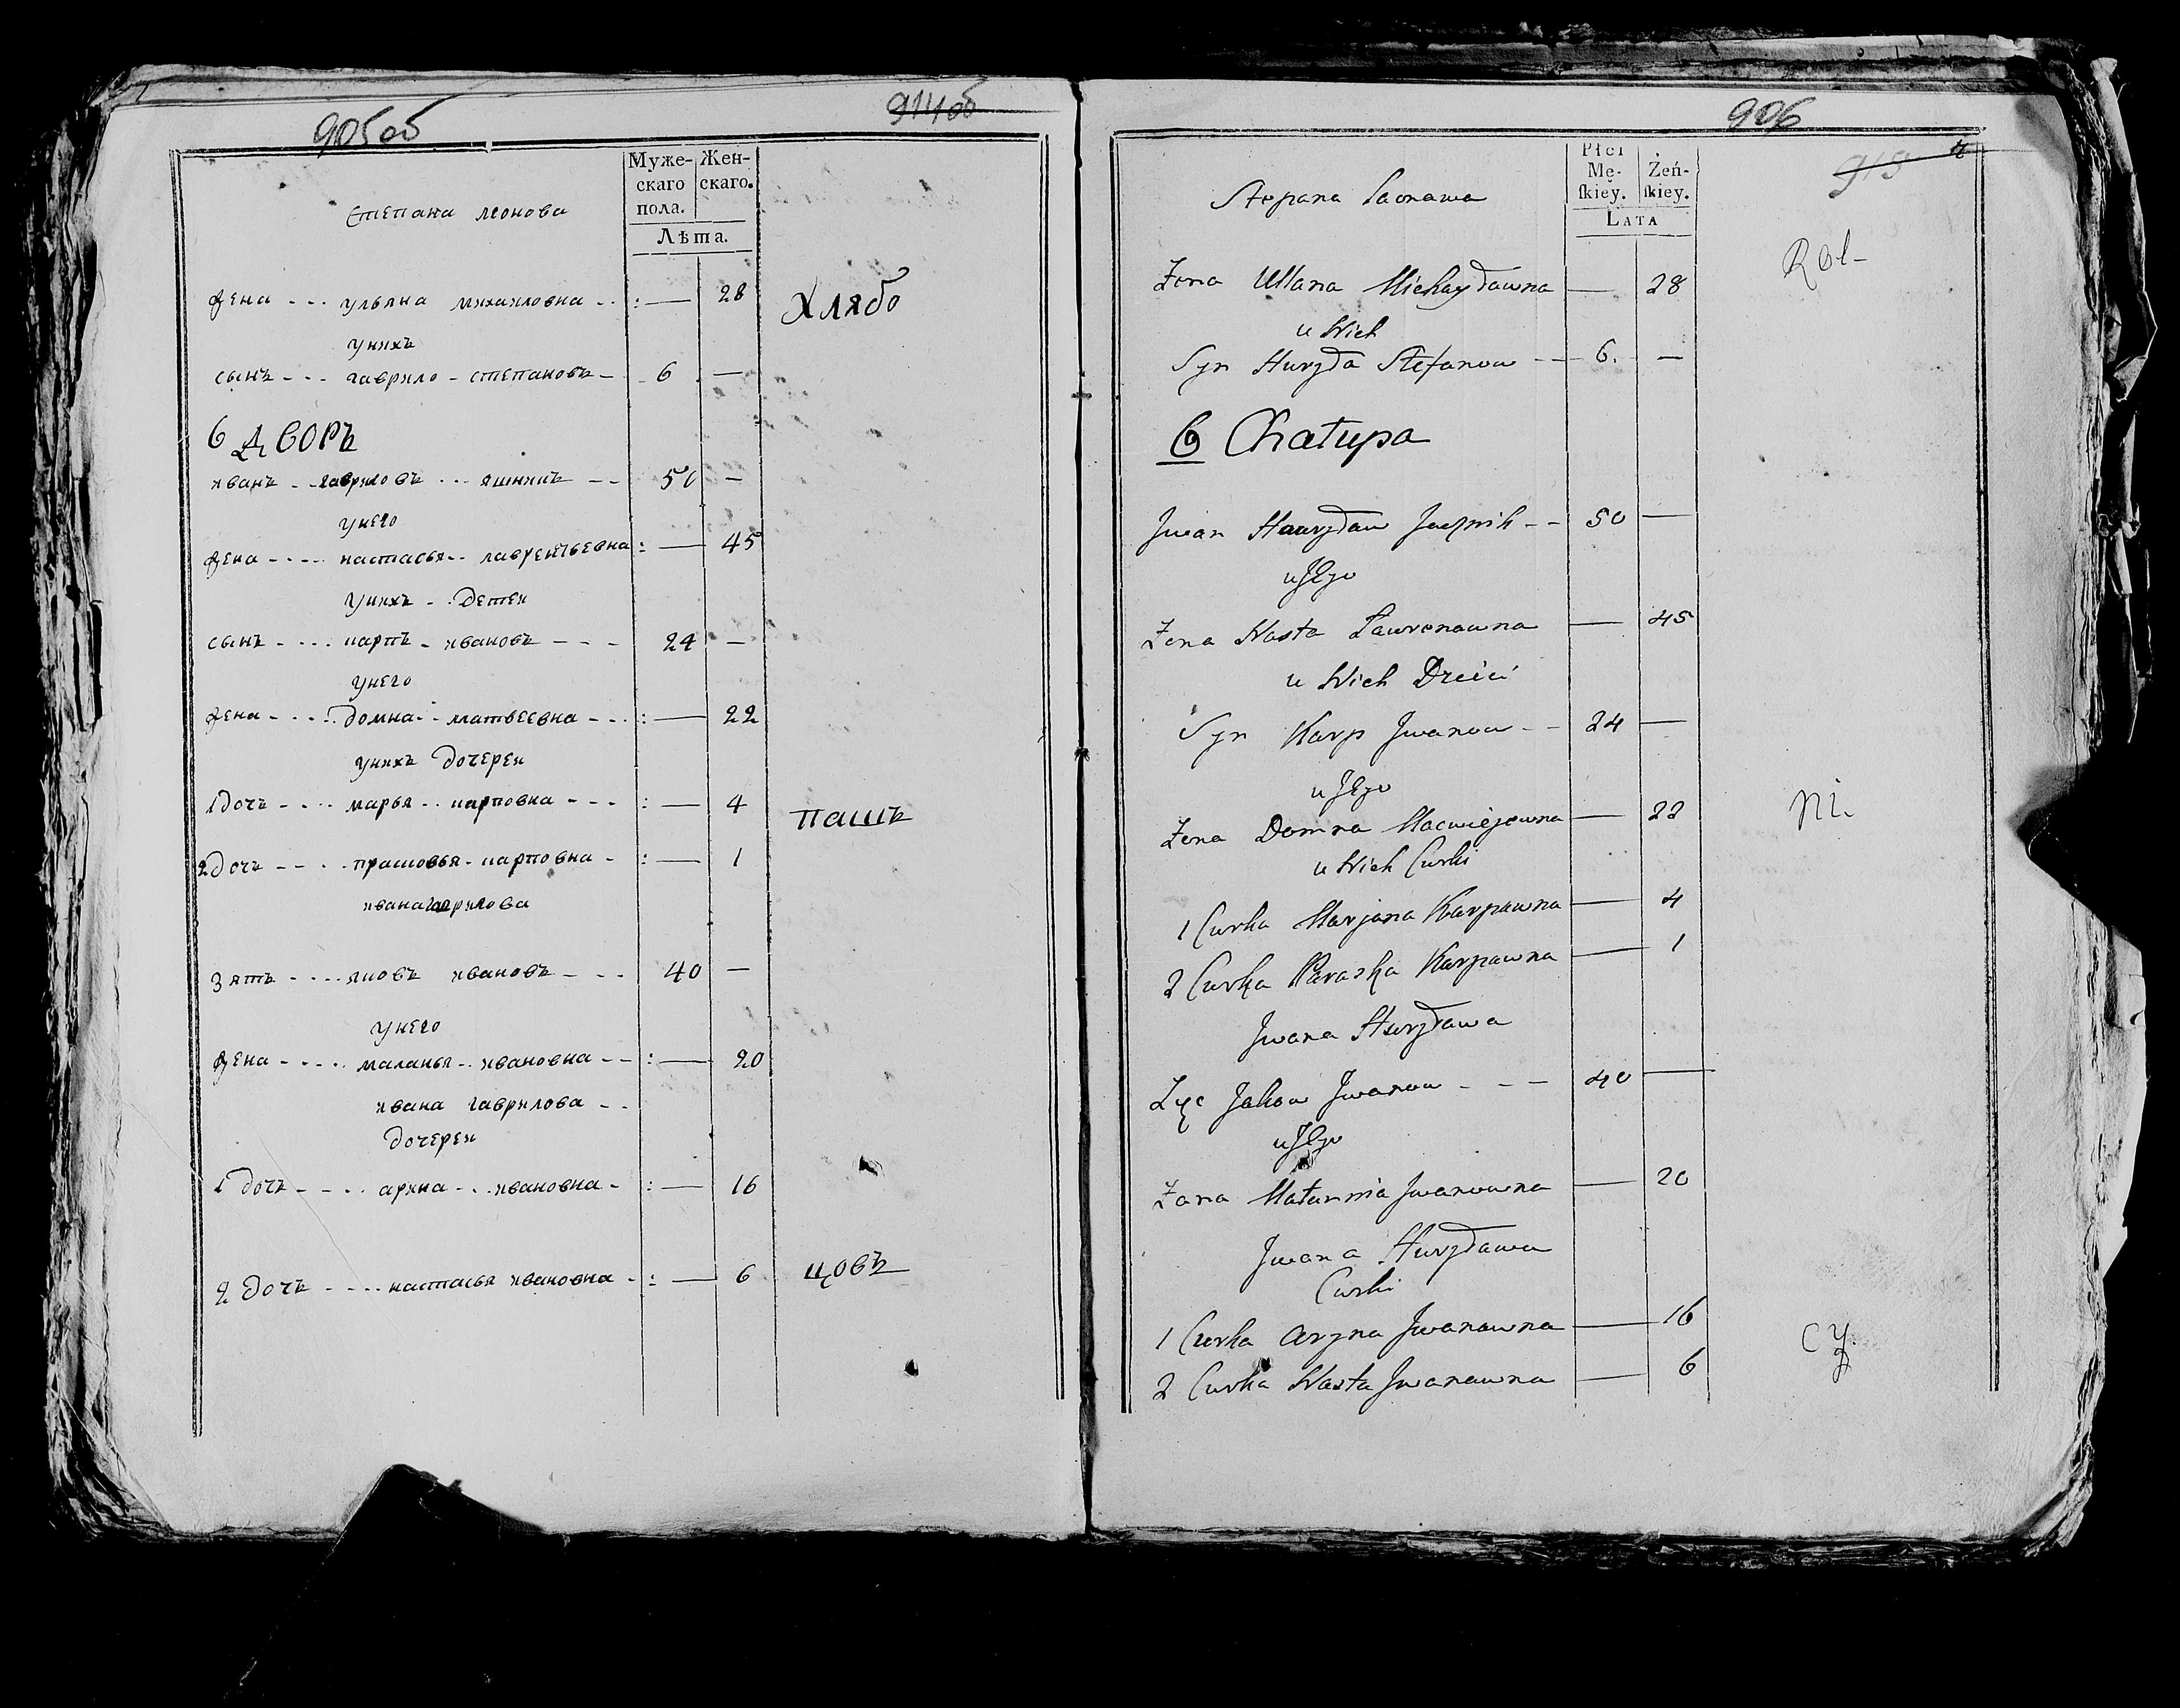 905об
914об
Муже-
скаго
пола.
Жен-
скаго.
Лѣта.
степана леонова
жена - - - ульяна михаиловна - - : — 28
Хлябо
унихъ
сынъ - - - гаврило - степановъ - 6 —
6 ДВОРЪ
иванъ - - гавриловъ - - - - - 50 —
унего
жена - - - - настасья - - лаврентьевна : — 45
унихъ - - детеи
сынъ - - - - карпъ - ивановъ - - - 24 —
унего
жена - - - - домна - - матвеевна - - - : — 22
унихъ дочереи
1 дочь - - - - марья - - карповна - - - : — 4
пашъ
2 дочь - - - - прасковья - карповна - : — 1
ивана гаврилова
зять - - - - яковъ ивановъ - - - 40 —
унего
жена - - - - маланья - - ивановна - - : — 20
ивана гаврилова - -
дочереи
1 дочь - - - - арина - - ивановна - : — 16
2 дочь - - - - настасья ивановна - : — 6
цовъ
906
915
Płci
Mę-
skiey.
Żeń-
skiey.
LATA
Stepana Laonawa
Rol-
Zona Ullana Michayławna — 28
u Nich
Syn Hawryła Stefanow - - 6. —
6 Chatupa
Jwan Hawryław - - 50 —
u Jego
Zona NastaŁawrenawna — 45
u Nich Dzieci
Syn Karp Jwanow - - 24 —
u Jego
ni.
Zona Domna Maciejewna — 22
u Nich Curki
1 Curka Marjana Karpawna — 4
2 Curka Paraska Karpawna — 1
Jwana Hawryława
Zyć Jakow Jwanow - - - 40 —
u Jego
Zona Małannia Jwanowna — 20
Jwana Hawryława
Curki
1 Curka Aryna Jwanawna — 16
cy.
2 Curka Nasta Jwanawna — 6